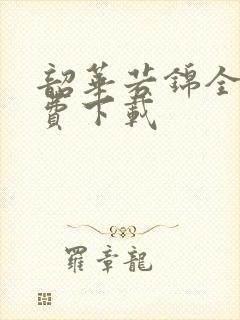 韶華若錦全
費下載
羅章龍